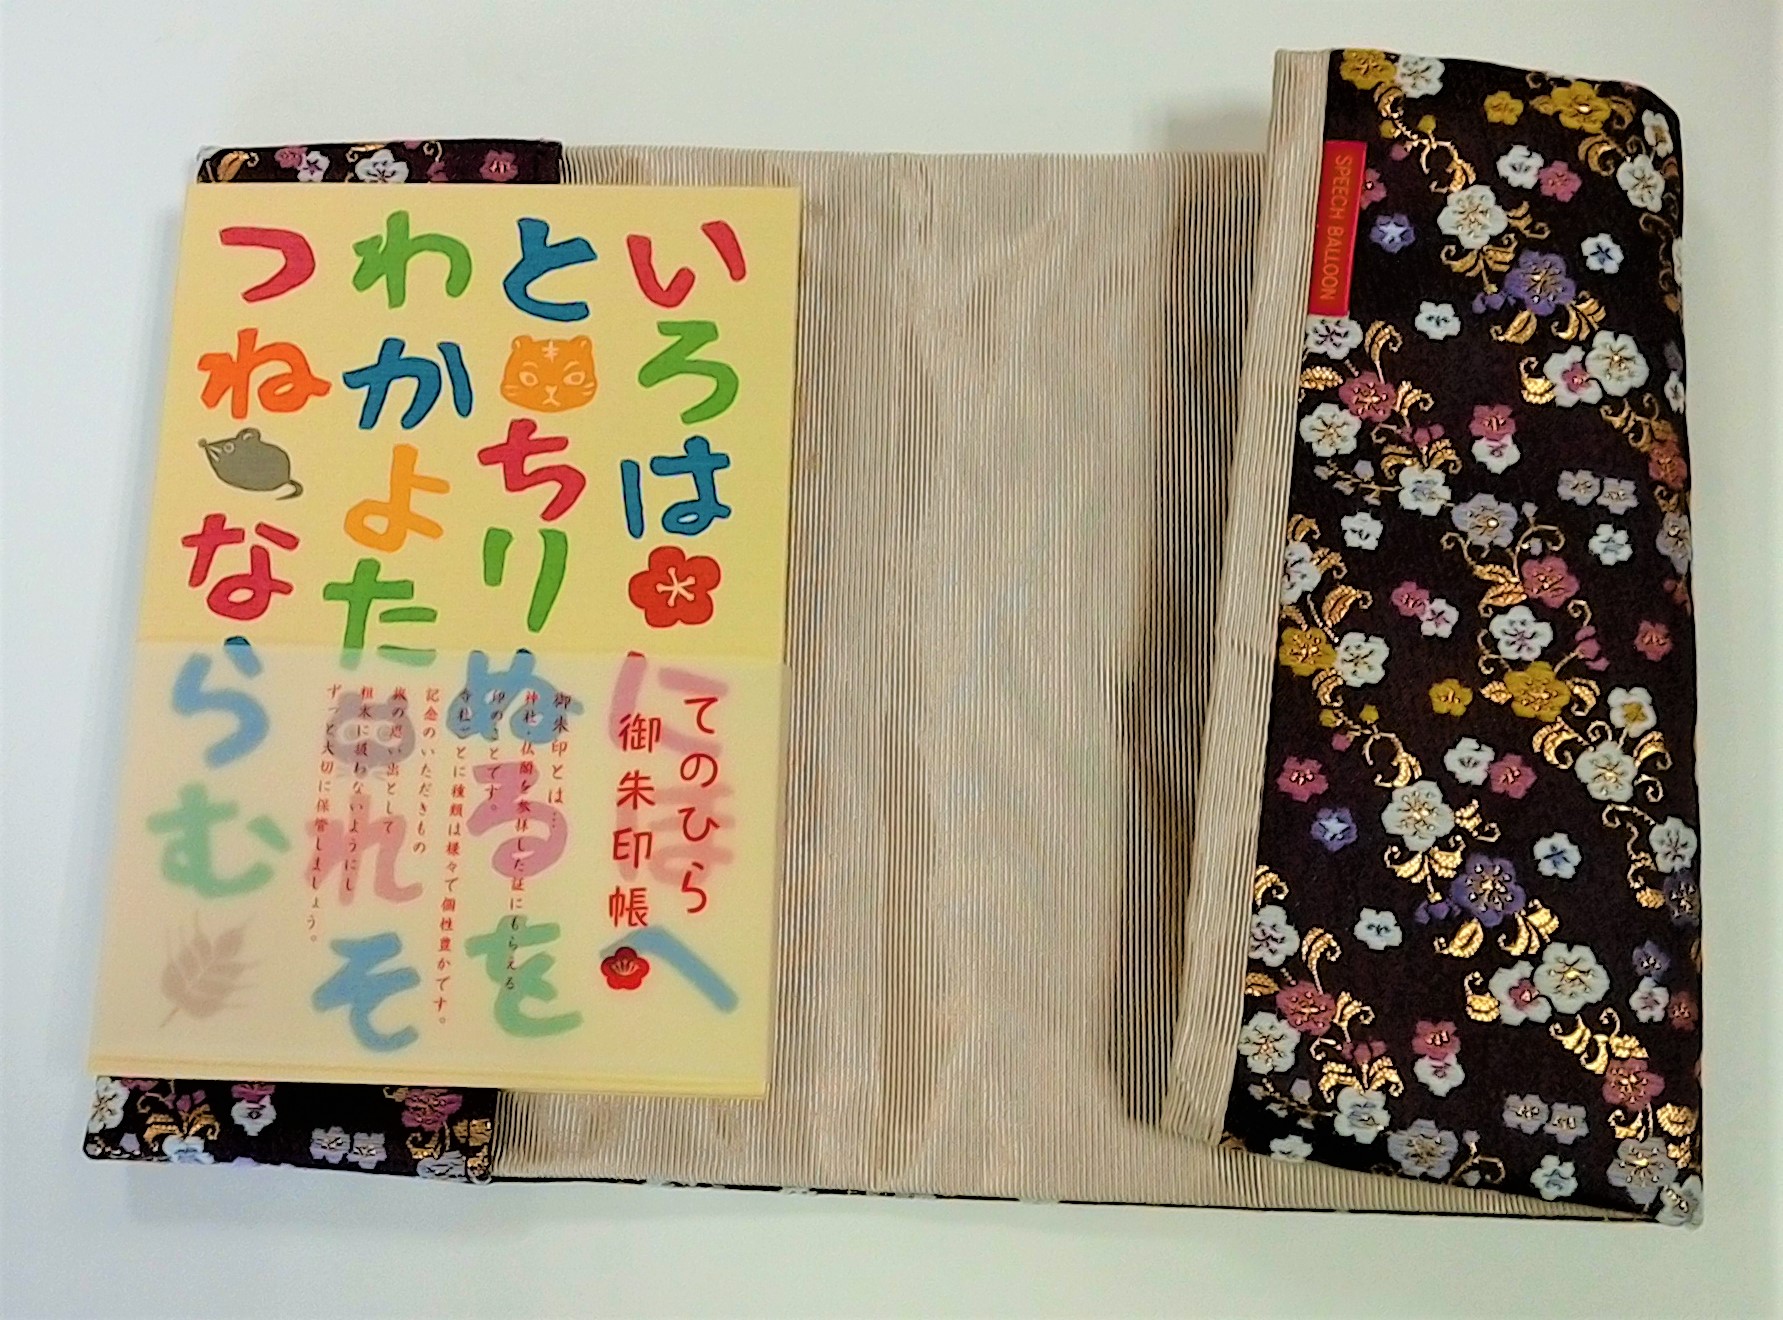 いろはにほへ
とちりぬるを
わかよたれそ
つねならむ
てのひら
御朱印帳
御朱印とは…
神社・仏閣を参拝した証にもらえる
印のことです。
寺社ごとに種類は様々で個性豊かです。
記念のいただきもの
旅の思い出として
粗末に扱わないようにし
ずっと大切に保管しましょう。
SPEECH BALLOON